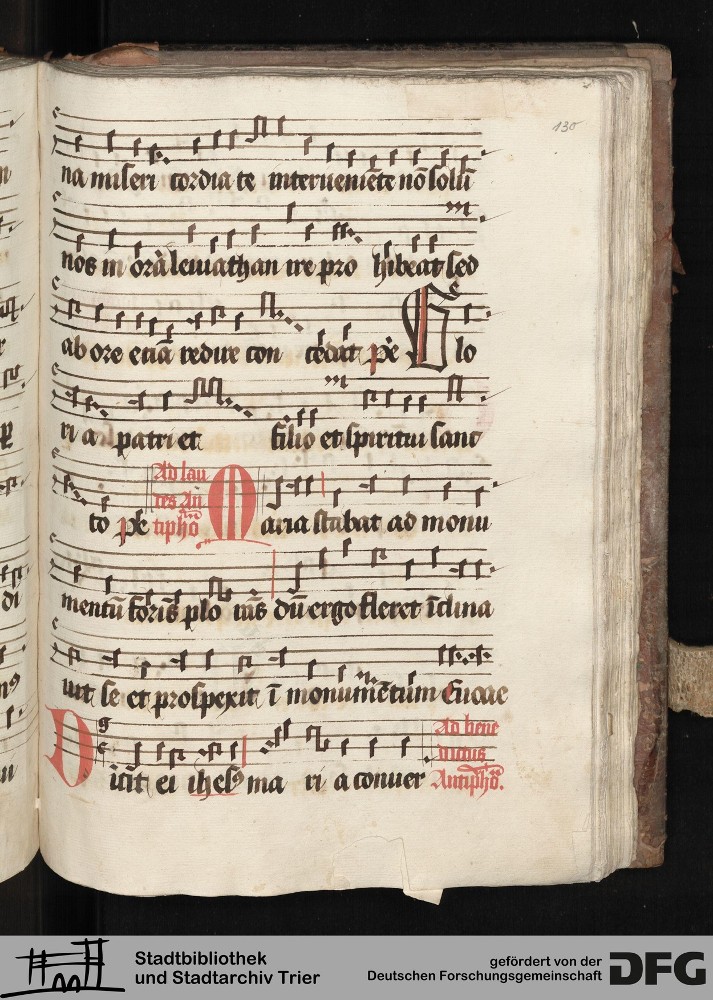 130
na miseri cordia te interueniēte nō solū
nos in orā leuiathan ire pro hibeat sed
ab ore etiā redire con cedat pe Glo
ri a patri et filio et spiritui sanc
to pe Ad lau
des An
tipho Maria stabat ad monu
mentū foris plo rās dū ergo fleret īclina
uit se et prospexit ī monumētum Euouae
Dicit ei ihesus ma ri a conuer Ad bene
dictus
Antipho.
Stadtbibliothek
und Stadtarchiv Trier
gefördert von der
Deutschen Forschungsgemeinschaft DFG